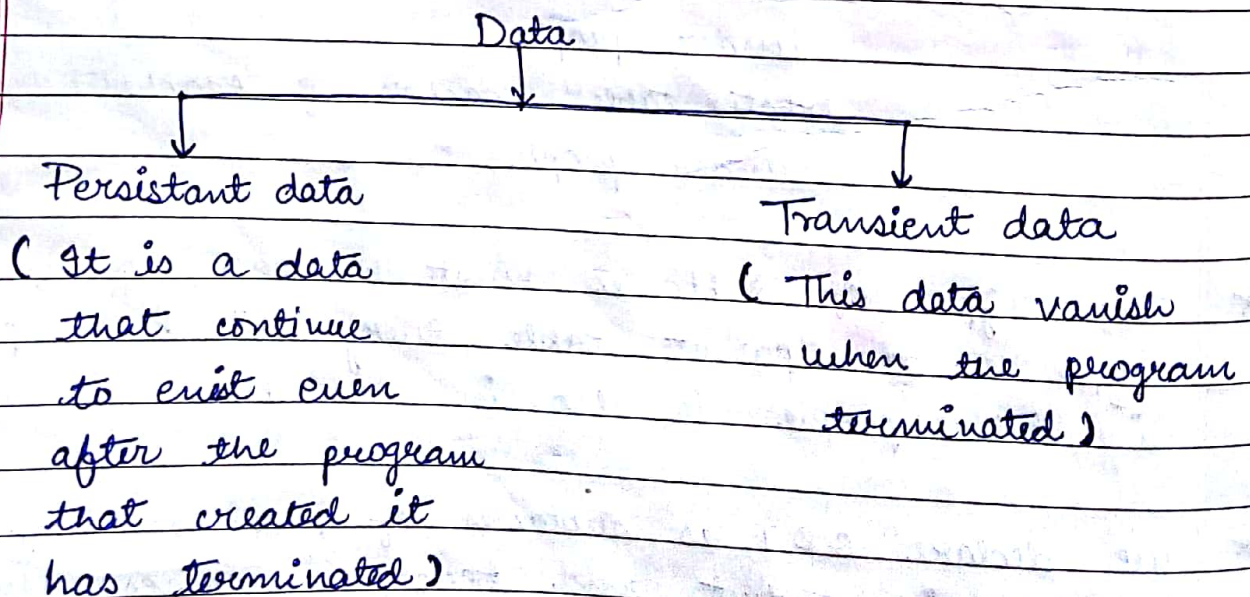 Data
Persistant data
( It is a data
that continue
to exist even
after the program
that created it
has terminated )
Transient data
( This data vanish
when the program
terminated )